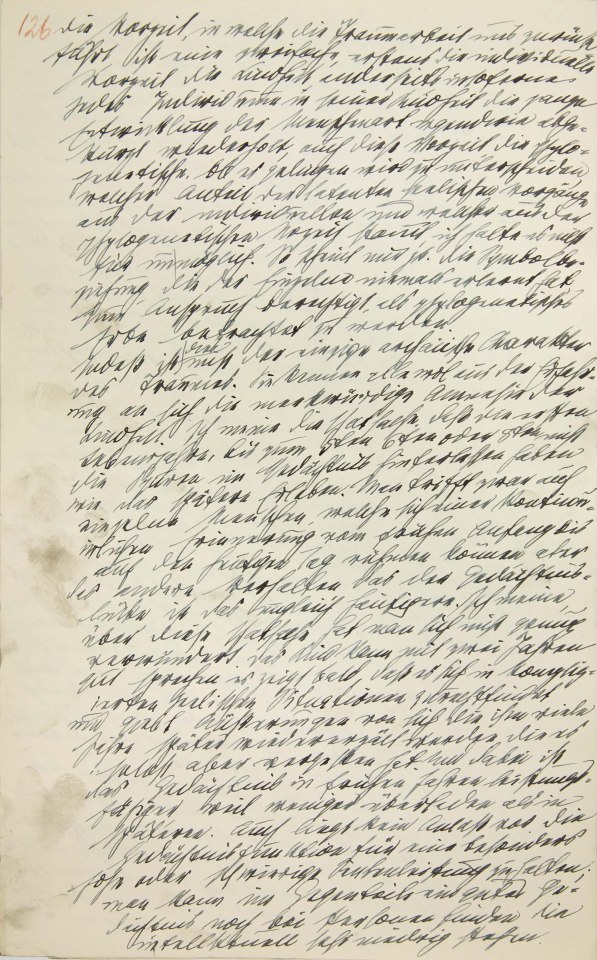 126 die Vorzeit, in welche die Traumarbeit uns zurück
führt ist eine zweifache, erstens die individuelle
Vorzeit die Kindheit anderseits insoferne
jedes Individuum in seiner Kindheit die ganze
Entwicklung der Menschenart irgendwie abge-
kürzt wiederholt auch diese Vorzeit die phylo-
genetische. Ob es gelingen wird zu unterscheiden
welcher Anteil der latenten seelischen Vorgänge
aus der individuellen und welcher aus der
phylogenetischen Vorzeit stamt ich halte es nicht
für unmöglich. So scheint mir z. b. die Symbolbe-
ziehung die der Einzelne niemals erlernt hat
zum Anspruch berechtigt als phylogenetisches
Erbe betrachtet zu werden.
Indeß ist dies nicht der einzige archaische Charakter
des Traumes. Sie kennen alle wol aus der Erfahr-
ung an sich die merkwürdige Amnesie der
Kindheit. Ich meine die Thatsache, daß die ersten
Lebensjahre, bis zum 5ten 6ten oder 8ten nicht
die Spuren im Gedächtnis hinterlassen haben
wie das spätere Erleben. Man trifft zwar auf
einzelne Menschen, welche sich einer kontinu-
irlichen Erinnerung vom frühen Anfang bis
auf den heutigen Tag rühmen können aber
das andere Verhalten das der Gedächtnis-
lücke ist das ungleich häufigere. Ich meine
über diese Thatsache hat man sich nicht genug
verwundert. das Kind kann mit zwei Jahren
gut sprechen es zeigt bald, daß es sich in kompliz-
ierten seelischen Situationen zurechtfindet
und giebt Äußerungen von sich die ihm viele
Jahre später wiedererzält werden die es
selbst aber vergessen hat. und dabei ist
das Gedächtnis in frühen Jahren leistungs-
fähiger weil weniger überladen als in
späteren. Auch liegt kein Anlass vor die
Gedächtnisfunktion für eine besonders
hohe oder schwierige Seelenleistung zu halten;
man kann im Gegenteile ein gutes Ge-
dächtnis noch bei Personen finden die
intellektuell sehr niedrig stehen.